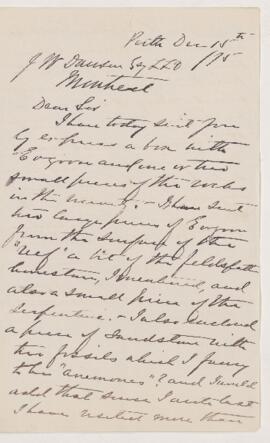 Perth Dec 15th /75
J W Dawson Esq LLD
Montreal
Dear Sir
I have today sent you
by express a box with
Eozoon and one or two
small pieces of the rocks
in the vicinity - I have sent
two large pieces of Eozoon
from the surface of the
"reef" a bit of the feldspathic
limestone, I mentioned, and
also a small piece of the
Serpentine. - I also enclosed
a piece of Sandstone with
two fossils which I fancy
to be "anemones"? and I would
add that since I wrote last
I have visited more than